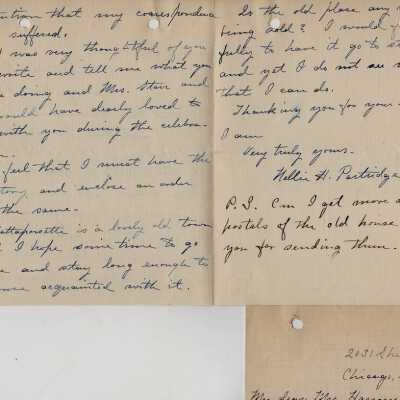 that my
suffered.
was very thoughtful of you
write and tell me what you
doing and Mrs. Starr and
would have dearly loved to
with you during the celebra-
feel that I must have the
and enclose an order
the same.
is a lovely old town
I hope sometime to go
and stay long enough to
acquainted with it.
Is the old place any
being sold? I would
fully to have it go to
and yet I do not see
that I can do.
Thanking you for your
I am
Very truly yours.
Nellie H. Partridge
P.S. Can I get more
postals of the old house
you for sending them.
2031 She
Chicago,
My dear Mrs.